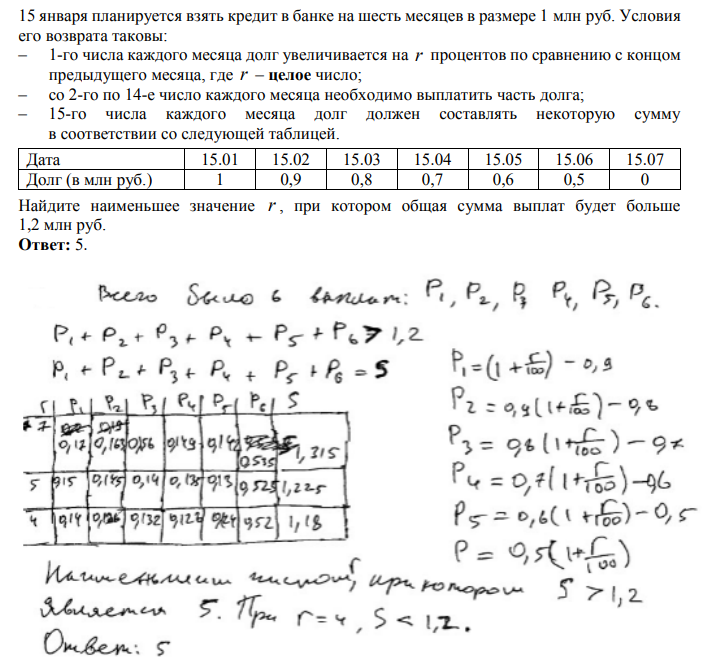 15 января планируется взять кредит в банке на шесть месяцев в размере 1 млн руб. Условия
его возврата таковы:
– 1-го числа каждого месяца долг увеличивается на r процентов по сравнению с концом
предыдущего месяца, где r – целое число;
– со 2-го по 14-е число каждого месяца необходимо выплатить часть долга;
– 15-го числа каждого месяца долг должен составлять некоторую сумму
в соответствии со следующей таблицей.
Дата 15.01 15.02 15.03 15.04 15.05 15.06 15.07
Долг (в млн руб.) 1 0,9 0,8 0,7 0,6 0,5 0
Найдите наименьшее значение r, при котором общая сумма выплат будет больше
1,2 млн руб.
Ответ: 5.
Всего было 6 выплат: P₁, P₂, P₃ P₄, P₅, P₆.
P₁ + P₂ + P₃ + P₄ + P₅ + P₆ > 1,2
P₁ + P₂ + P₃ + P₄ + P₅ + P₆ = S
r P₁ P₂ P₃ P₄ P₅ P₆ S
7 0,17 0,163 0,156 0,149 0,142 0,535 1,315
5 0,15 0,145 0,14 0,135 0,13 0,525 1,225
4 0,14 0,136 0,132 0,124 0,52 1,18
P₁ = (1 + r/100) – 0,9
P₂ = 0,9(1 + r/100) – 0,8
P₃ = 0,8(1 + r/100) – 0,7
P₄ = 0,7(1 + r/100) – 0,6
P₅ = 0,6(1 + r/100) – 0,5
P = 0,5(1 + r/100)
Наименьшим числом r, при котором S > 1,2
является 5. При r = 4, S < 1,2.
Ответ: 5